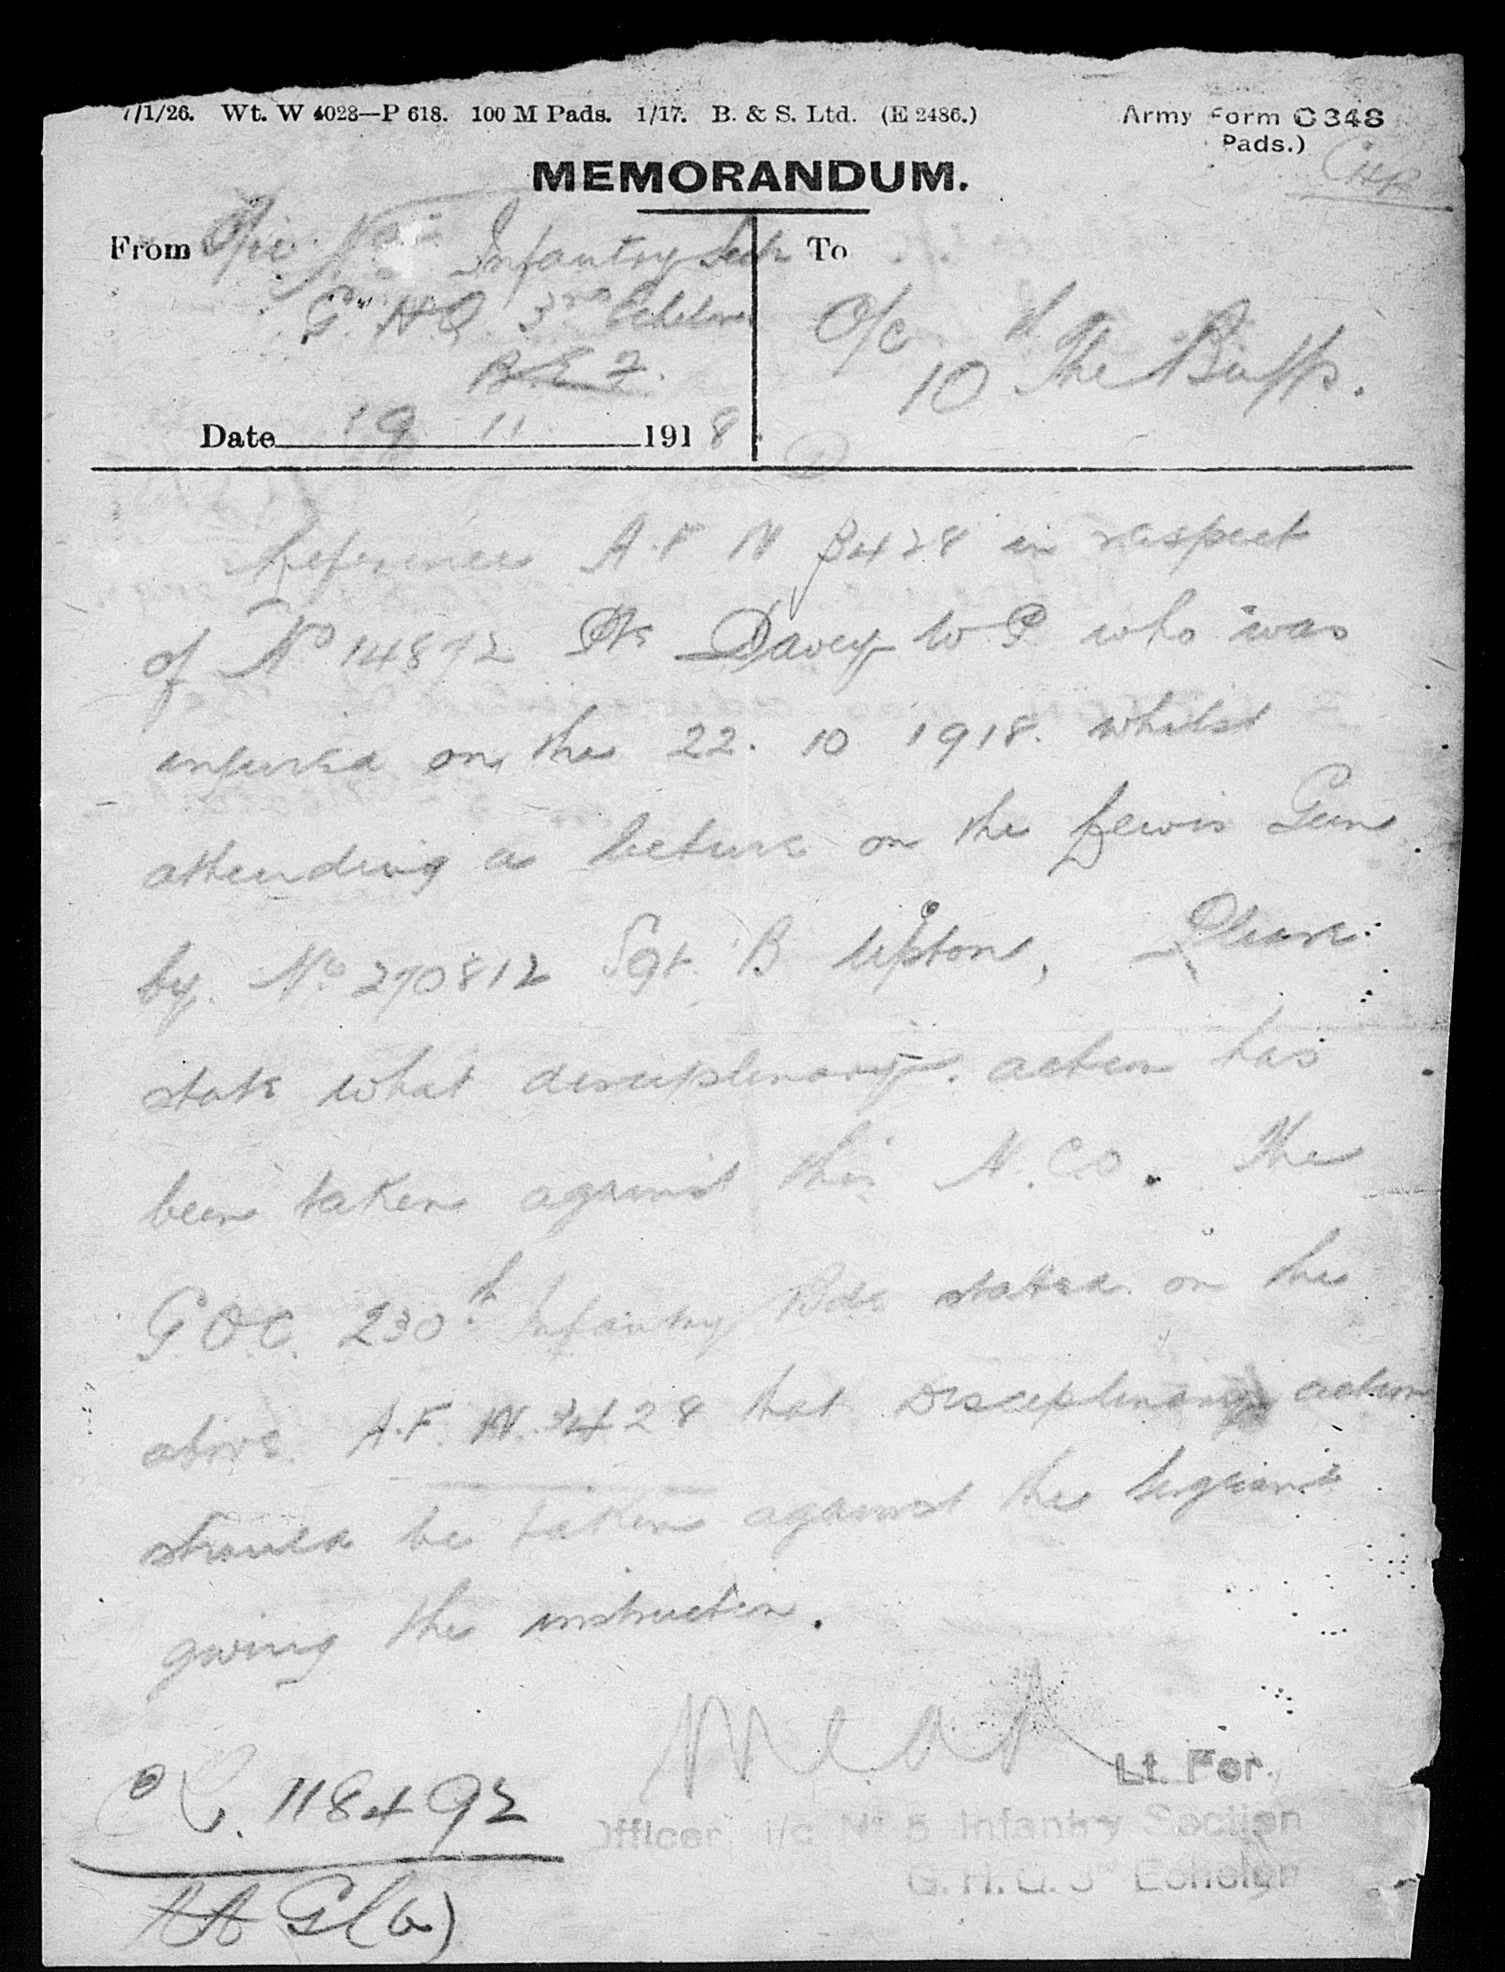 7/1/26. Wt. W 4028—P 618. 100 M Pads. 1/17. B. & S. Ltd. (E 2486.)
Army Form C 348
Pads.)
MEMORANDUM.
From O/ic No 5 Infantry Sect
G.H.Q. 3rd Echelon
B.E.F.
Date 19 11 1918.
To
O/c
10th The Buffs.
Reference A.F. W 3428 in respect
of No 14872 Pte Davey W P who was
injured on the 22. 10 1918. whilst
attending a lecture on the Lewis Gun
by No 270812 Sgt. B Upton, Please
state what disciplinary action has
been taken against this N.C.O. The
G.O.C. 230th Infantry Bde stated on the
above A.F. W. 3428 that Disciplinary action
should be taken against the sergeant
giving the instruction.
Lt. For.
Officer i/c No 5 Infantry Section
G.H.Q. 3rd Echelon
118492
G (b)